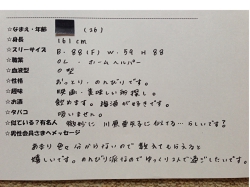 ☆なまえ・年齢 (26)
☆身長 161cm
☆スリーサイズ B.88(F) W.59 H 88
☆職業 OL. ホームヘルパー
☆血液型 O型
☆性格 おっとり、のんびりです。
☆趣味 映画、美味しい所探し。
☆お酒 飲めます。梅酒が好きです。
☆タバコ 吸いません。
☆似ている?有名人 微妙に 川原亜矢子に似てる…らしいです?
☆男性会員さまへメッセージ
あまり 分からないので 教えてもらえると
嬉しいです。のんびり派なのでゆっくり2人で過ごしたいです。